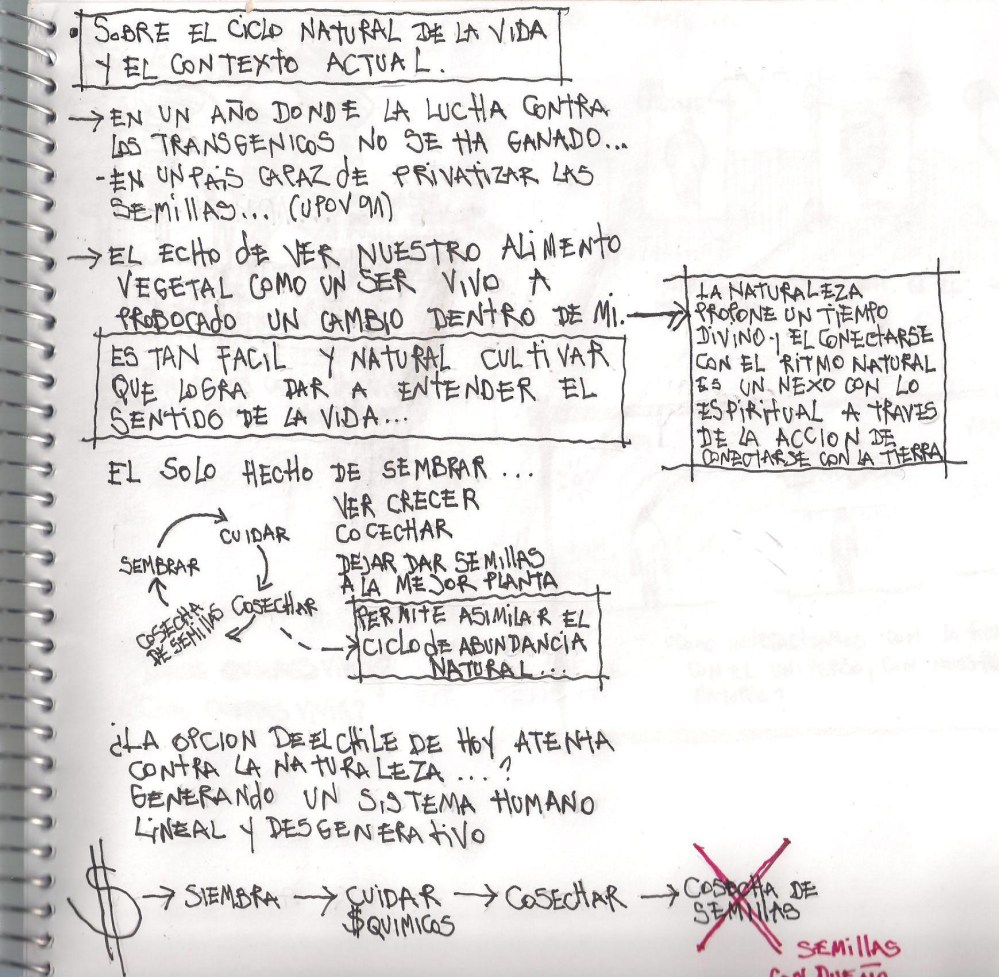 • SOBRE EL CICLO NATURAL DE LA VIDA
Y EL CONTEXTO ACTUAL.
→ EN UN AÑO DONDE LA LUCHA CONTRA
LOS TRANSGENICOS NO SE HA GANADO...
- EN UN PAIS CAPAZ DE PRIVATIZAR LAS
SEMILLAS... (UPOV 91)
→ EL ECHO DE VER NUESTRO ALIMENTO
VEGETAL COMO UN SER VIVO A
PROBOCADO UN CAMBIO DENTRO DE MI. →
LA NATURALEZA
PROPONE UN TIEMPO
DIVINO Y EL CONECTARSE
CON EL RITMO NATURAL
ES UN NEXO CON LO
ESPIRITUAL A TRAVES
DE LA ACCION DE
CONECTARSE CON LA TIERRA
ES TAN FACIL Y NATURAL CULTIVAR
QUE LOGRA DAR A ENTENDER EL
SENTIDO DE LA VIDA...
EL SOLO HECHO DE SEMBRAR...
VER CRECER
COCECHAR
DEJAR DAR SEMILLAS
A LA MEJOR PLANTA
PERMITE ASIMILAR EL
CICLO DE ABUNDANCIA
NATURAL...
SEMBRAR
CUIDAR
COSECHAR
COSECHA
DE SEMILLAS
¿LA OPCION DE EL CHILE DE HOY ATENTA
CONTRA LA NATURALEZA...?
GENERANDO UN SISTEMA HUMANO
LINEAL Y DESGENERATIVO
$ → SIEMBRA → CUIDAR → COSECHAR → COSECHA DE
$QUIMICOS
SEMILLAS
SEMILLAS
CON DUEÑO